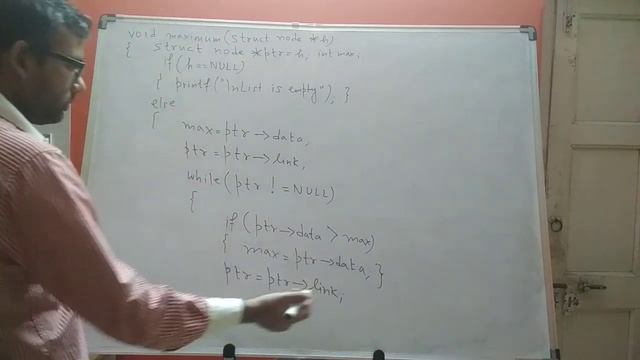 void maximum(struct node *h)
{ struct node *ptr=h, int max;
if (h==NULL)
{ printf("\nList is empty"); }
else
{
max=ptr->data;
ptr=ptr->link;
while(ptr != NULL)
{
if (ptr->data > max)
{ max=ptr->data; }
ptr=ptr->link;